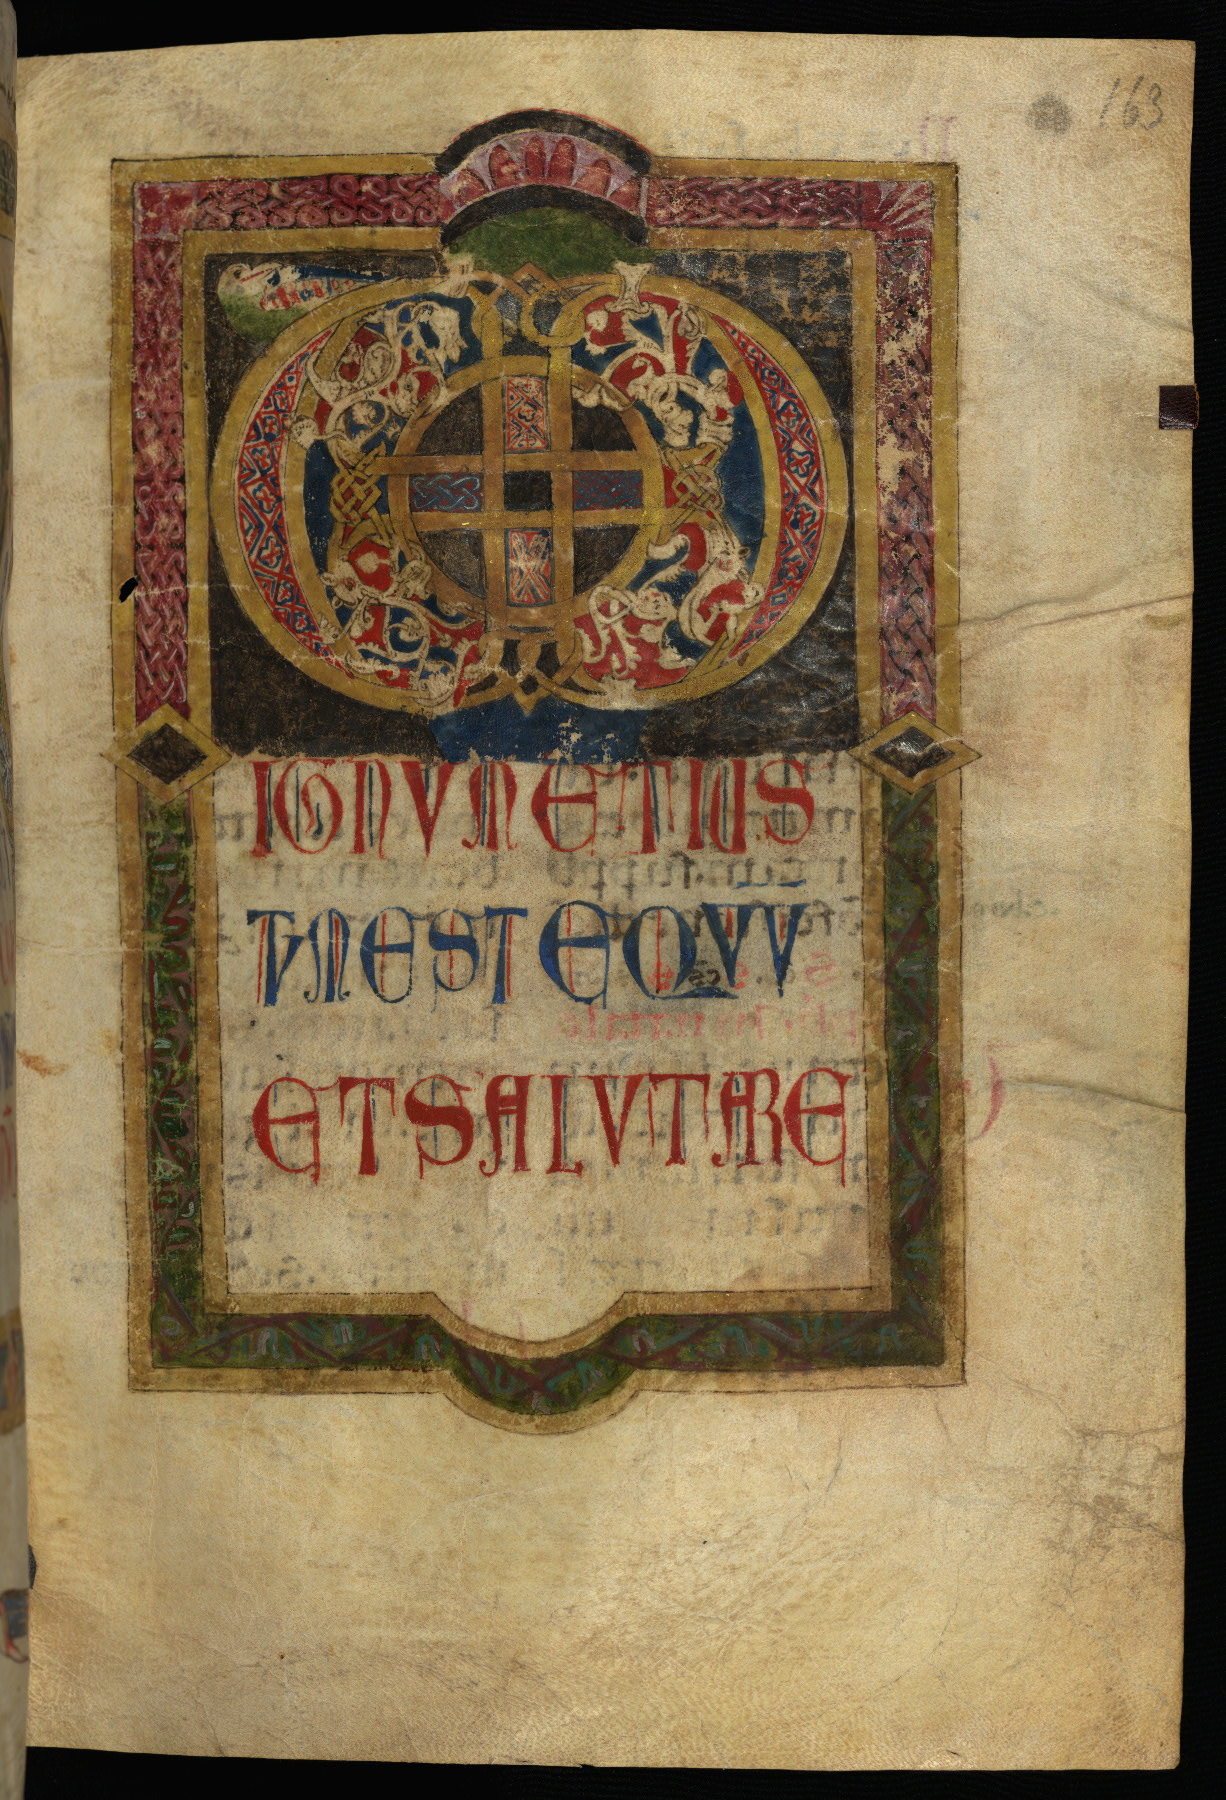 163
VD
IGNUM ET IUS
TUM EST EQUU̅
ET SALUTARE